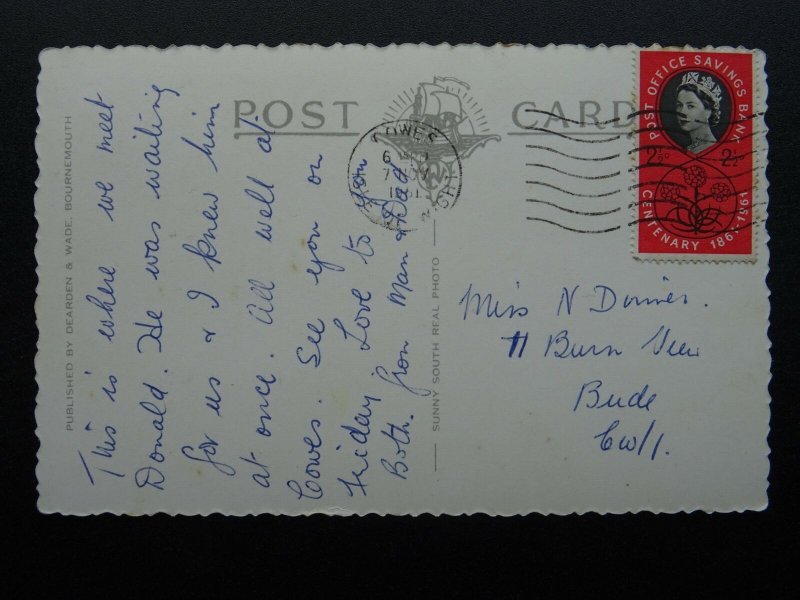 POST CARD
PUBLISHED BY DEARDEN & WADE, BOURNEMOUTH
This is where we meet
Donald. He was waiting
for us & I knew him
at once. All well at
Cowes. See you on
Friday Love to you
Both. from Mam & Dad
SUNNY SOUTH REAL PHOTO
COWES
7 NOV
1961
POST OFFICE SAVINGS BANK
2½D 2½D
CENTENARY 1861 1961
Miss N
11 Burn View
Bude